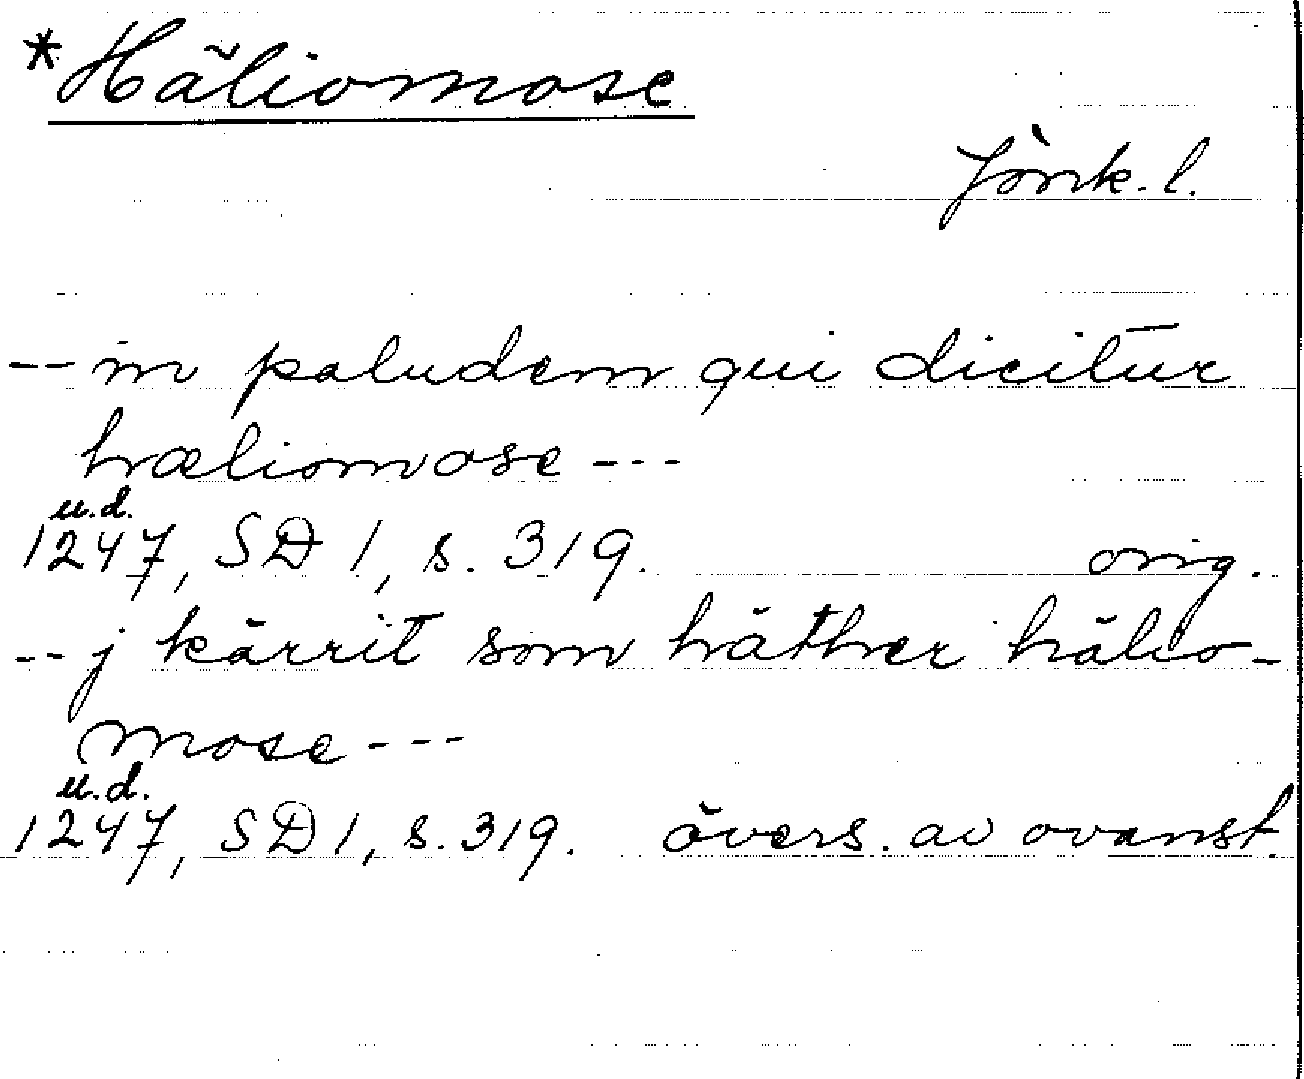 *Häliomose
Jönk. l.
-- in paludem qui dicitur
hæliomose ---
u.d.
1247, SD 1, s. 319. orig.
-- j kärrit som häther hälio-
mose ---
u.d.
1247, SD 1, s. 319. övers. av ovanst.